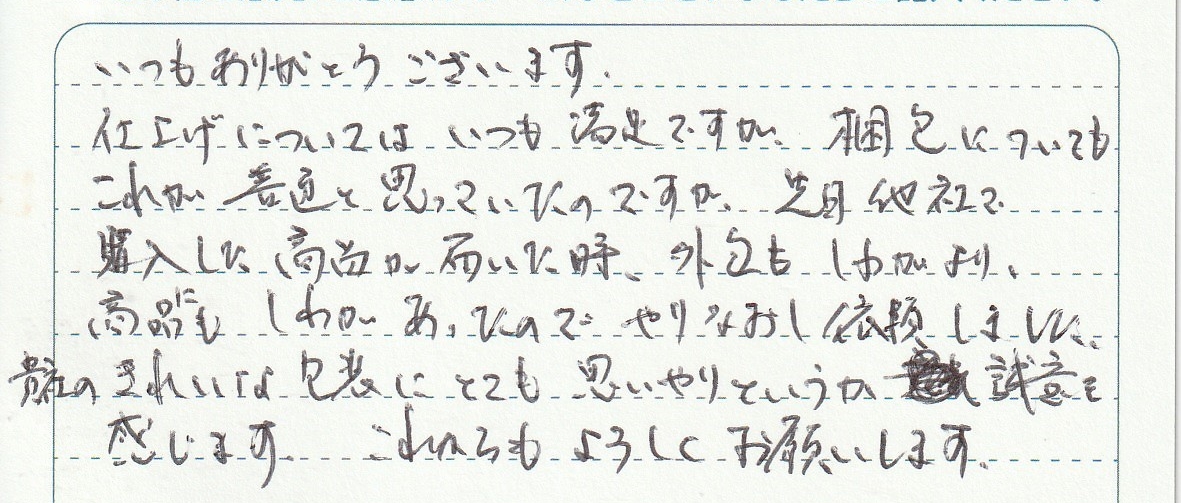 いつもありがとうございます。
仕上げについてはいつも満足ですが、梱包についても
これが普通と思っていたのですが、先日他社で
購入した商品が届いた時、外包もしわがより、
商品にもしわがあったのでやりなおし依頼しました。
貴社のきれいな包装にとても思いやりというか誠意を
感じます。これからもよろしくお願いします。